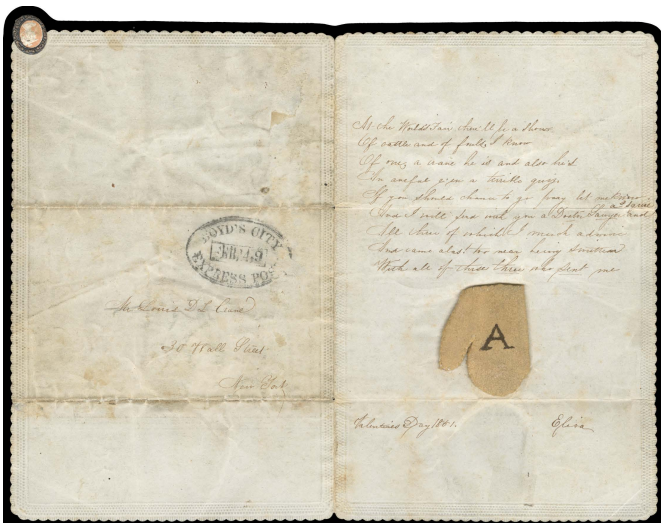 BOYD'S CITY
EXPRESS POST
Mr Louis D L Crane
Wall Street
New York
At the World's Fair there'll be a show
Of cattle and of fowls, I know
Of one, a crane he is and also
In awful a terrible guy.
If you should chance to go pray let me know
And I will send with you a
All three of which I much admire
And came almost too near being smitten
With all of those three who sent me
A
Valentines Day 1851.
Eliza